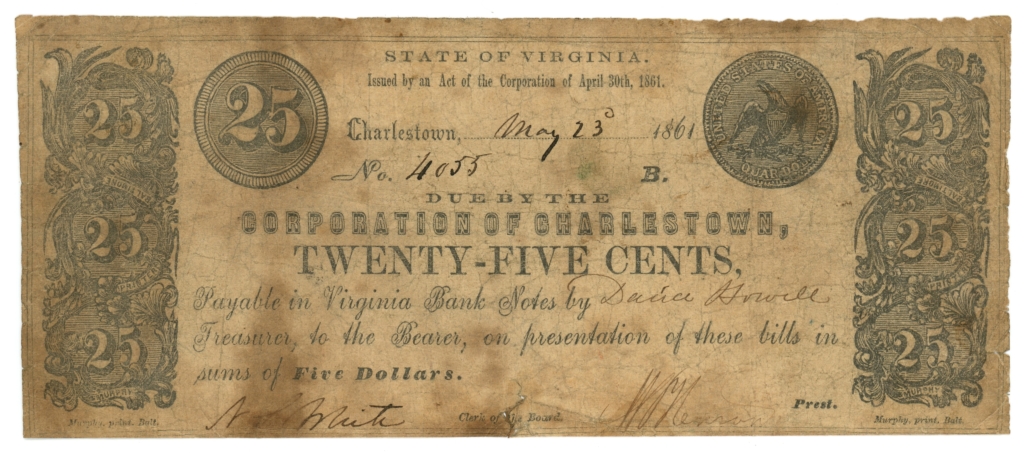 STATE OF VIRGINIA.
Issued by an Act of the Corporation of April 30th, 1861.
25
25
25
25
25
25
25
UNITED STATES OF AMERICA
QUAR. DOL.
Charlestown, May 23d 1861
No. 4055 B.
DUE BY THE
CORPORATION OF CHARLESTOWN,
TWENTY-FIVE CENTS,
Payable in Virginia Bank Notes by Howell
Treasurer, to the Bearer, on presentation of these bills in
sums of Five Dollars.
White Clerk of the Board. Prest.
MURPHY MURPHY
Murphy, print. Balt. Murphy, print. Balt.